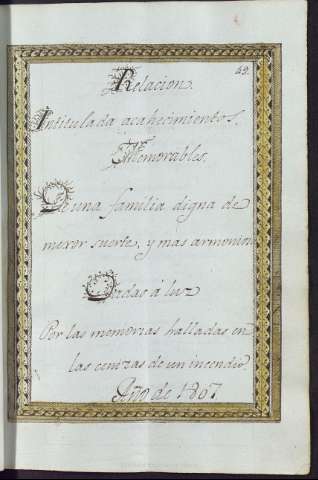 69.
Relacion.
Intitulada acahecimientos.
Memorables.
De una familia digna de
mexor suerte, y mas armonion
Dadas á luz
Por las memorias halladas en
las cenizas de un incendio.
Año de 1807